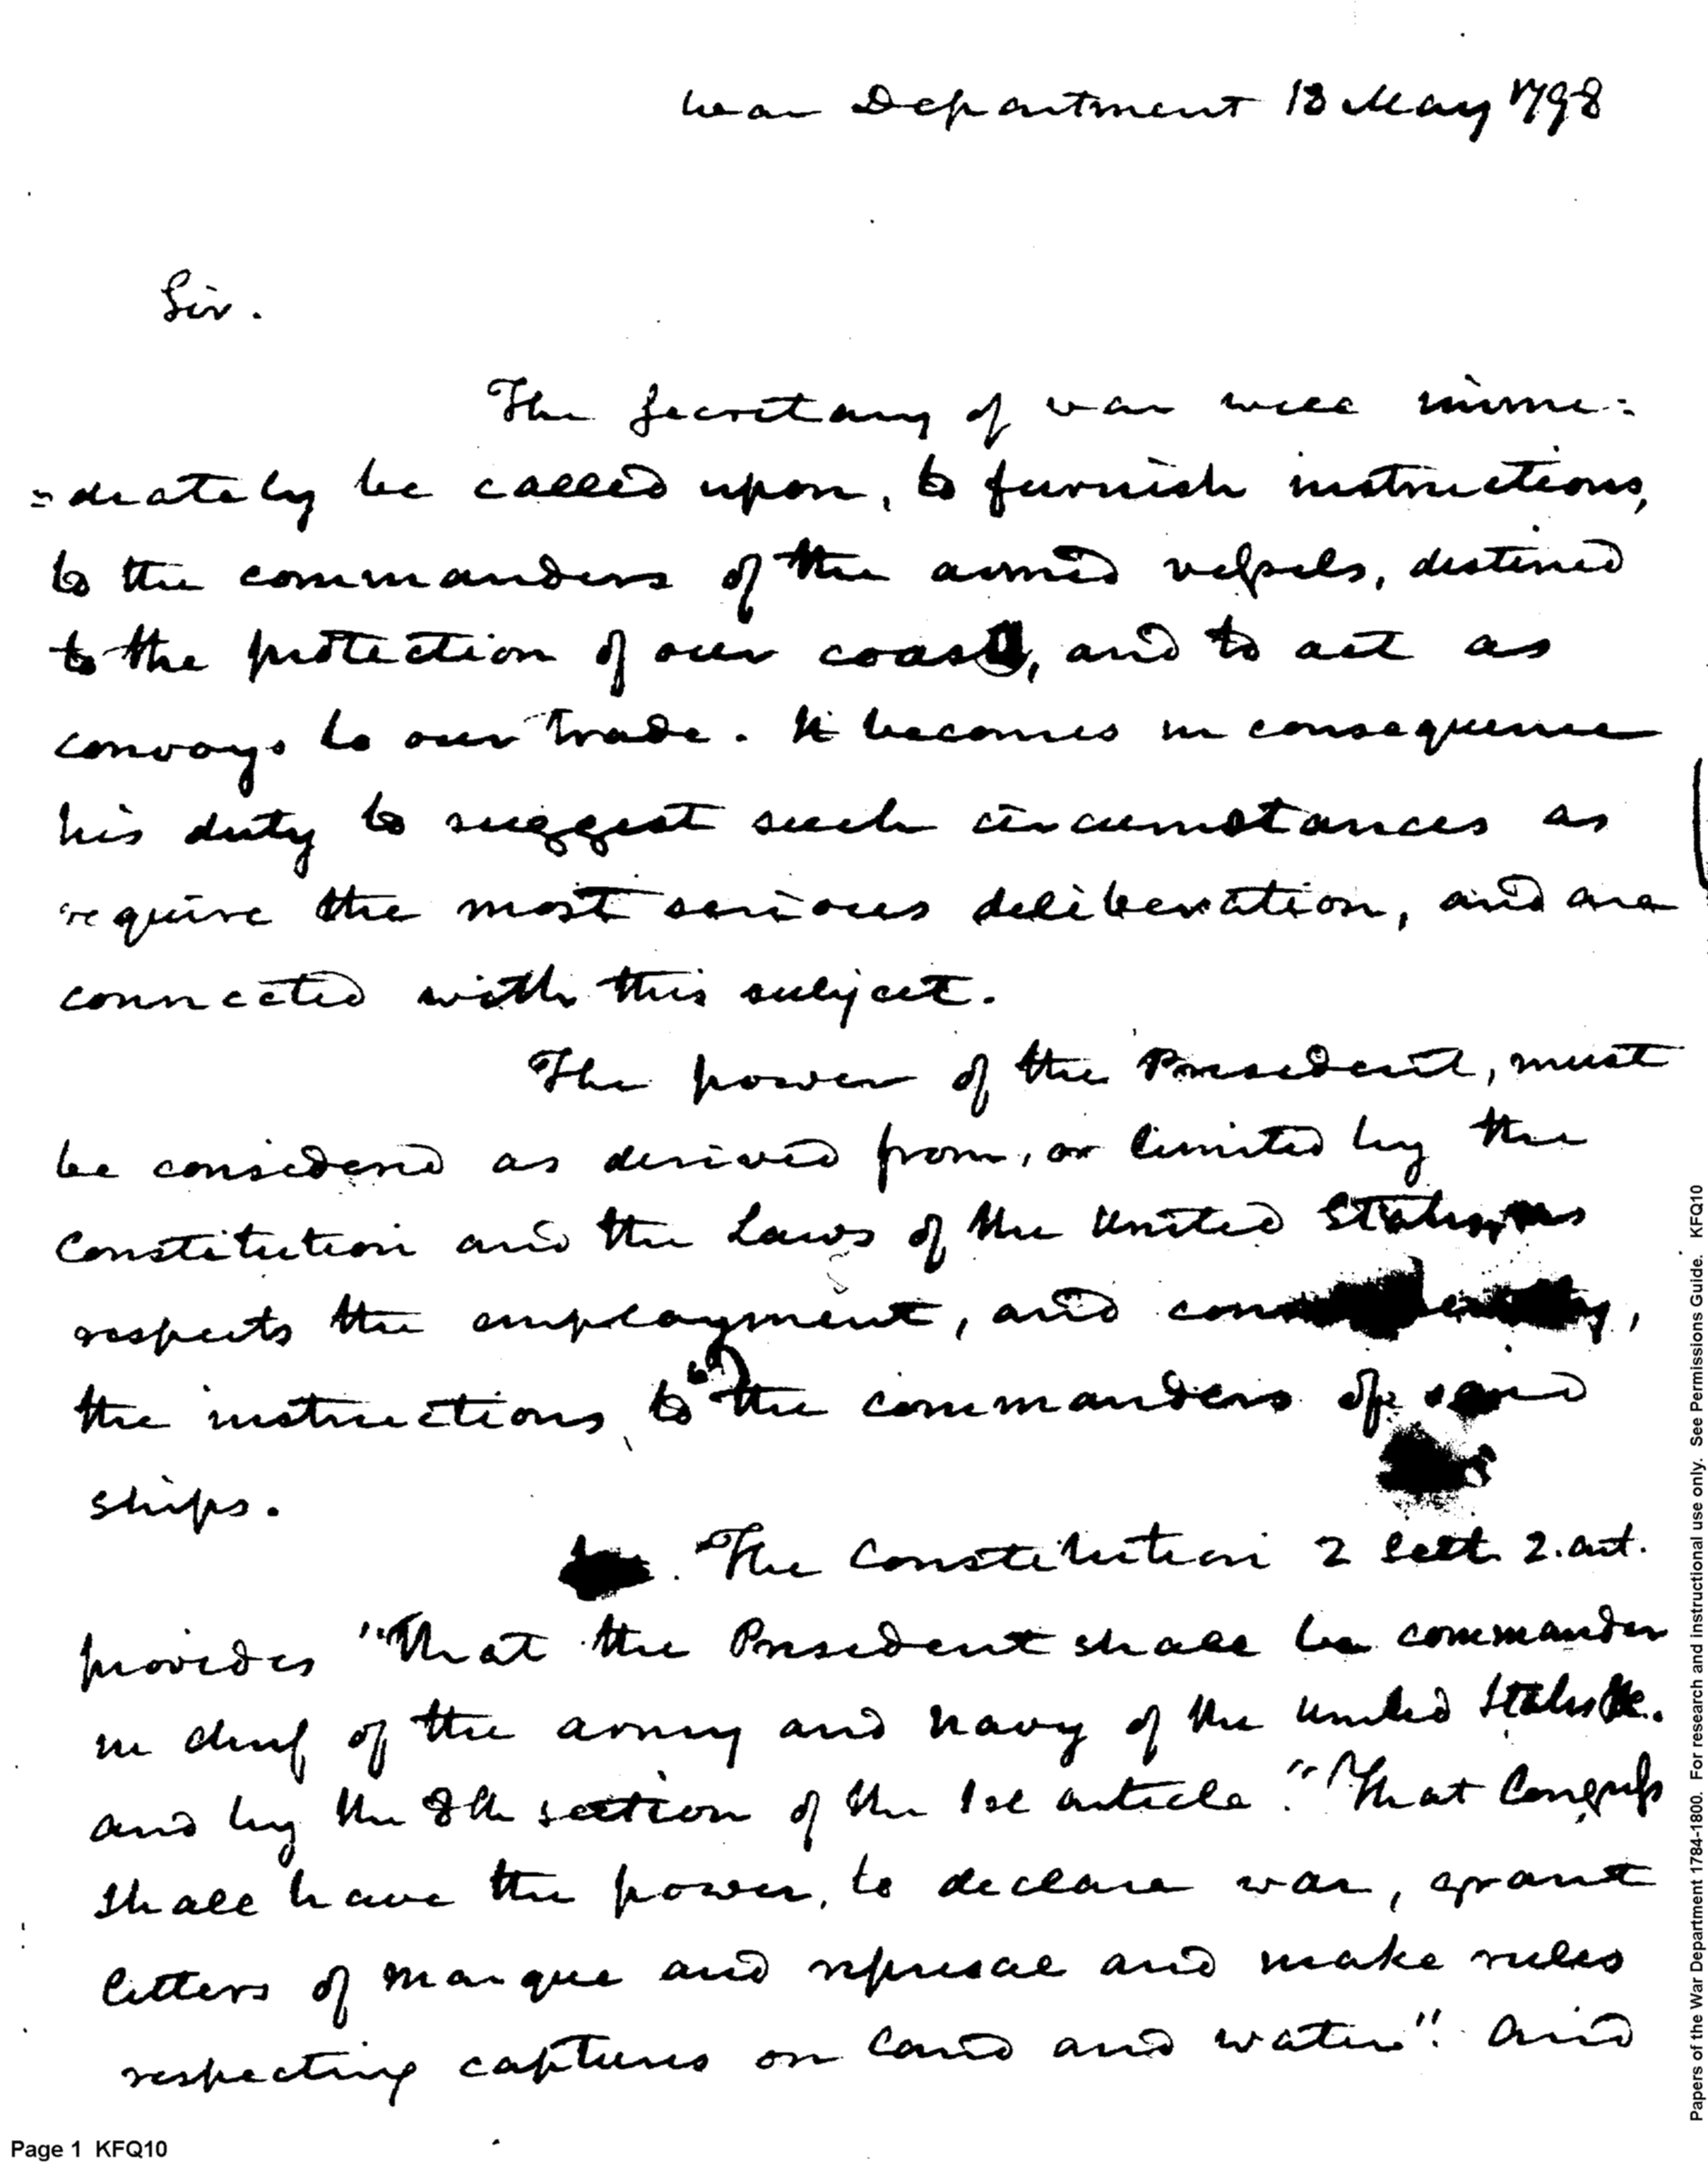 War Department 18 May 1798
Sir.
The Secretary of war will imme=
=diately be called upon, to furnish instructions,
to the commanders of the armed vessels, destined
to the protection of our coast, and to act as
convoys to our trade. It becomes in consequence
his duty to suggest such circumstances as
require the most serious deliberation, and are
connected with this subject.
The power of the President, must
be considered as derived from, or limited by the
Constitution and the Laws of the United States, as
respects the employment, and
the instructions, to the commanders of said
ships.
The Constitution 2 Sect. 2. art.
provides "That the President shall be commander
in chief of the army and navy of the United States &c.
and by the 8th section of the 1st article." "That Congress
shall have the power, to declare war, grant
letters of marque and reprisal and make rules
respecting captures on land and water". And
Page 1 KFQ10
Papers of the War Department 1784-1800. For research and instructional use only. See Permissions Guide. KFQ10